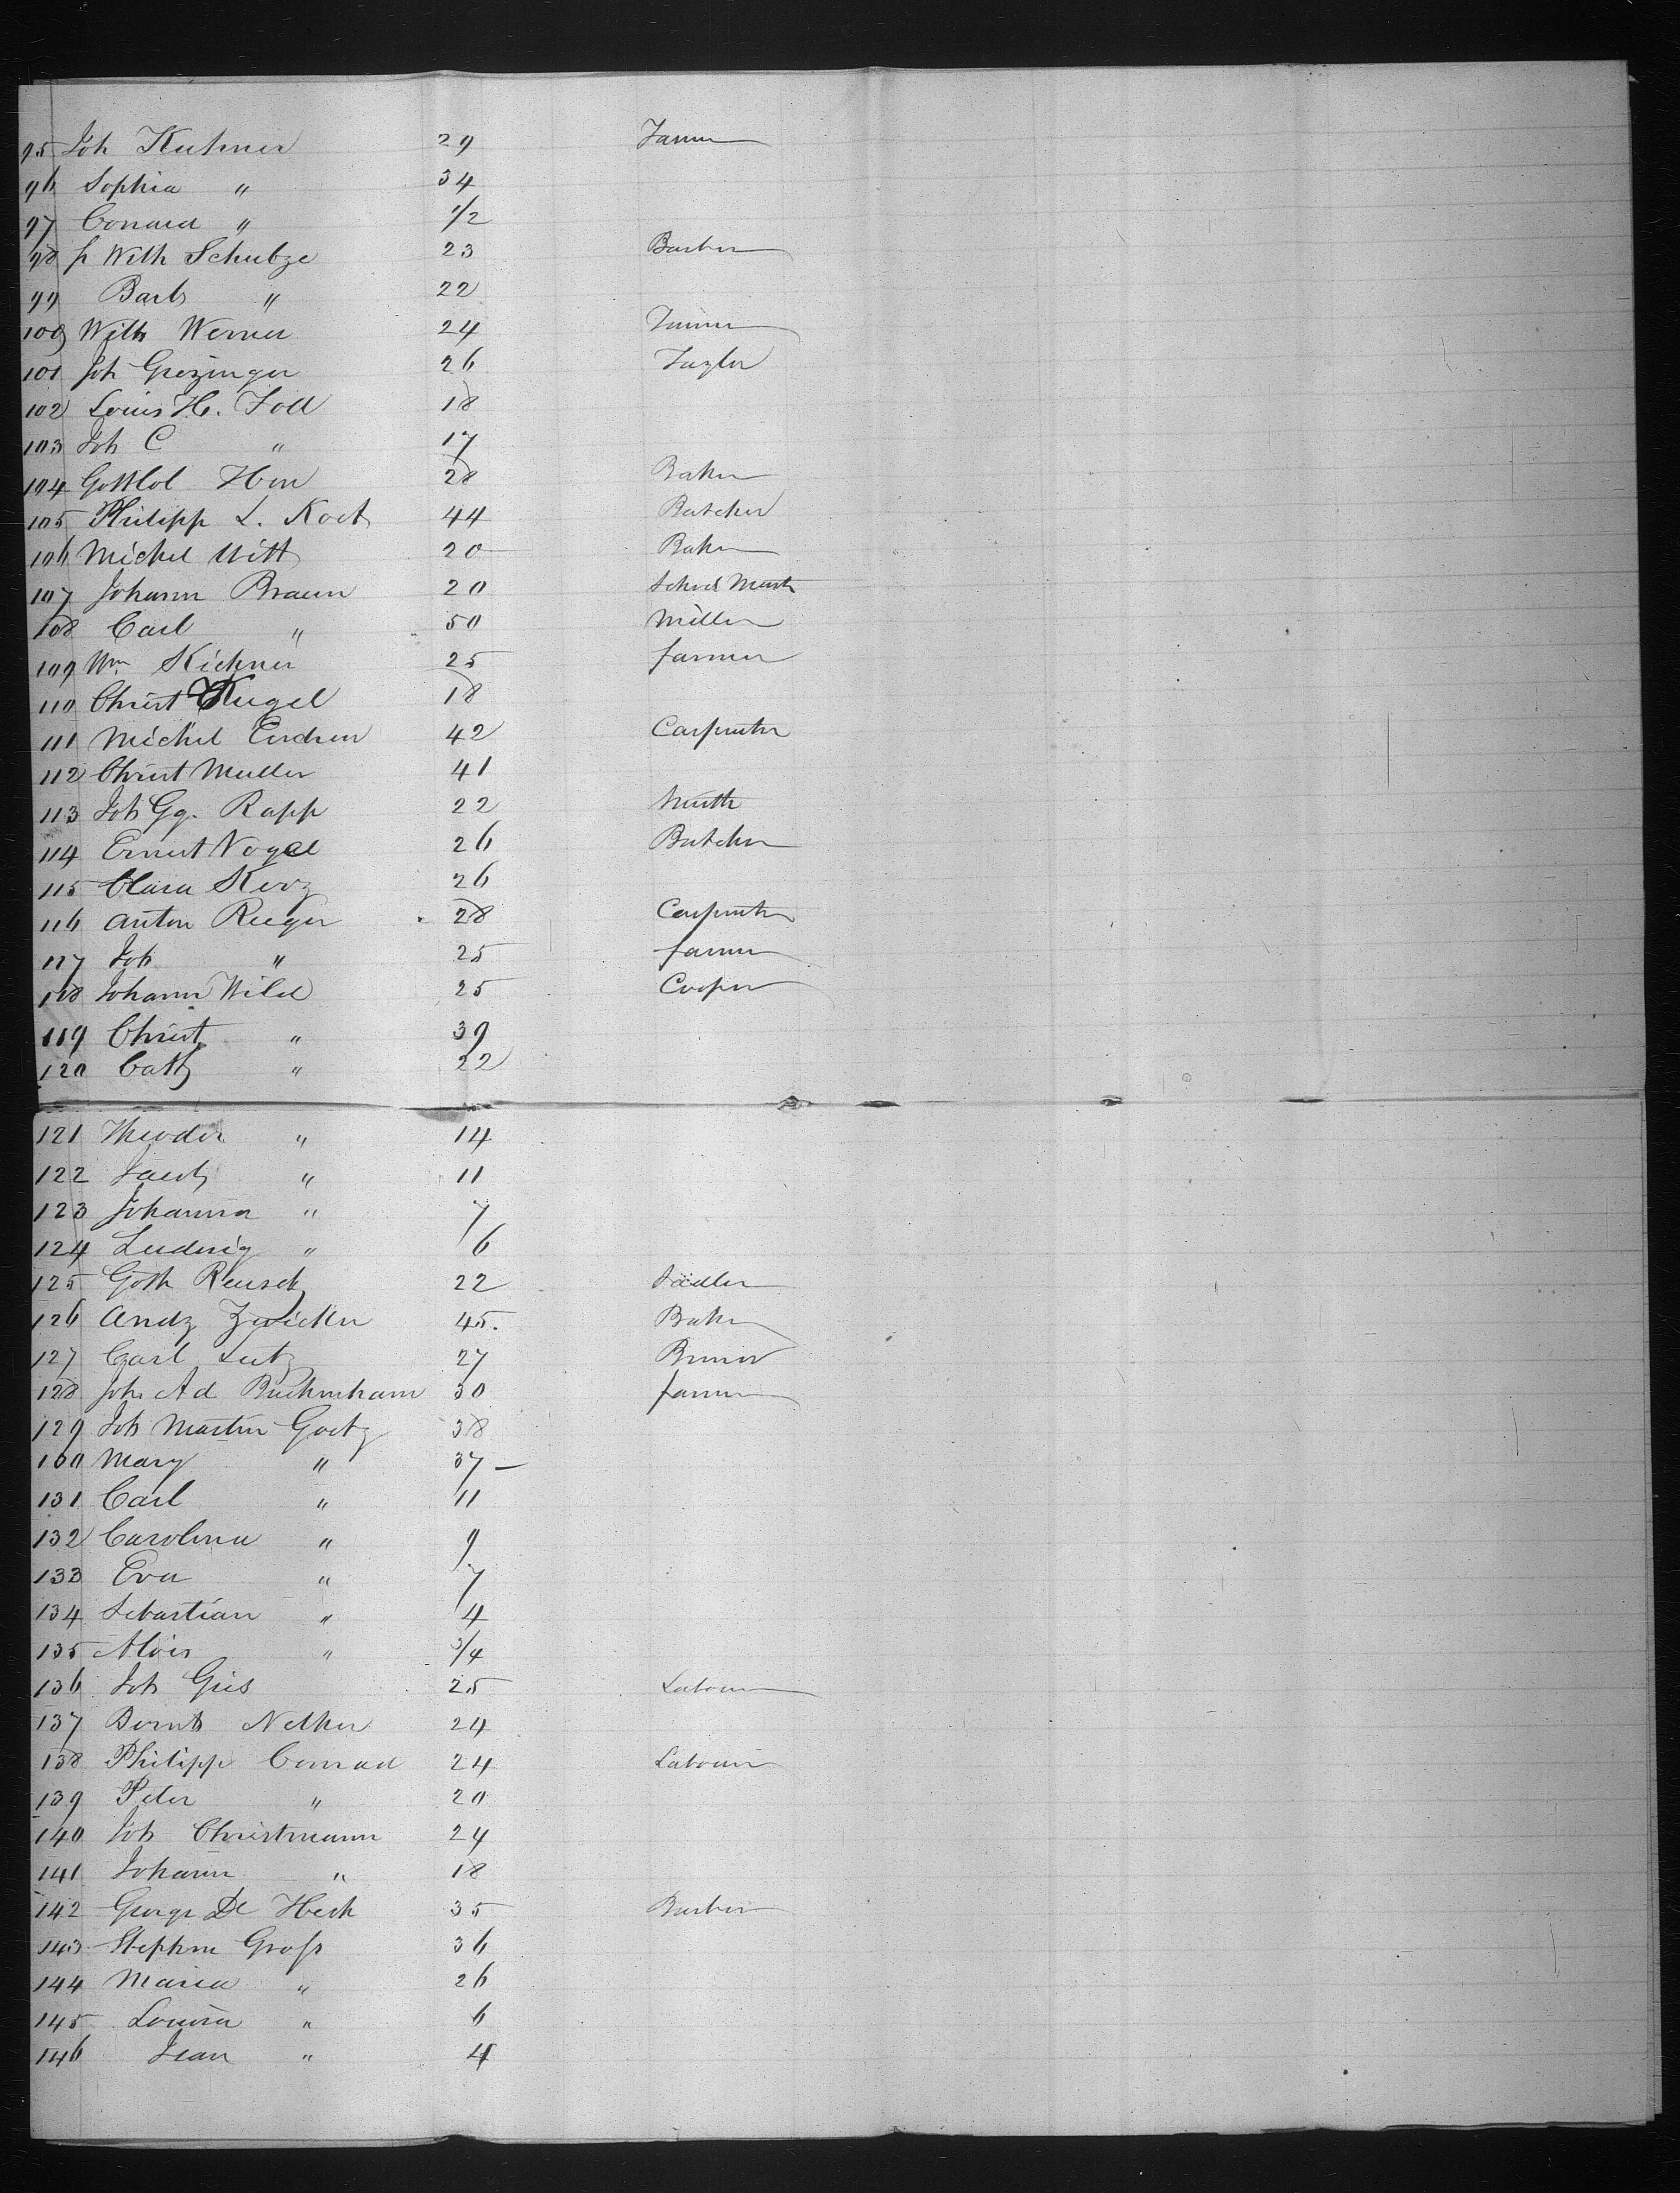 95 Joh Kuhner 29 Farmer
96 Sophia " 34
97 Conrad " 1/2
98 Wilh Schulze 23 Barber
99 Barb " 22
100 Wilh Werner 24
101 Joh Grezinger 26 Taylor
102 Louis H. Foll 18
103 Joh C " 17
104 Gottlob Horn 28 Baker
105 Philipp L. Koch 44 Butcher
106 Michel Uitt 20 Baker
107 Johann Braun 20 School Mast
108 Carl " 50 Miller
109 Wm Kichner 25 farmer
110 Christ Kugel 18
111 Michel 42 Carpenter
112 Christ Muller 41
113 Joh Gg. Rapp 22 Smith
114 Ernest Vogel 26 Butcher
115 Clara 26
116 Anton Rieger 28 Carpenter
117 Joh " 25 farmer
118 Johann Wild 25 Cooper
119 Christ " 39
120 Cath " 22
121 Theodor " 14
122 Jacob " 11
123 Johanna " 7
124 Ludwig " 6
125 Goth Reusch 22 Sädler
126 Andr Zwicker 45. Baker
127 Carl Lutz 27 Brewer
128 Joh Ad 30 farmer
129 Joh Martin Goetz 38
130 Mary " 37 –
131 Carl " 11
132 Carolina " 9
133 Eva " 7
134 Sebastian " 4
135 Alois " 3/4
136 Joh Gies 25 Labourer
137 Bernh Nelker 24
138 Philipp Conrad 24 Labourer
139 Peter " 20
140 Joh Christmann 24
141 Johann " 18
142 George De Hesh 35 Barber
143 Stephen Gross 36
144 Maria " 26
145 Louisa " 6
146 Jean " 4